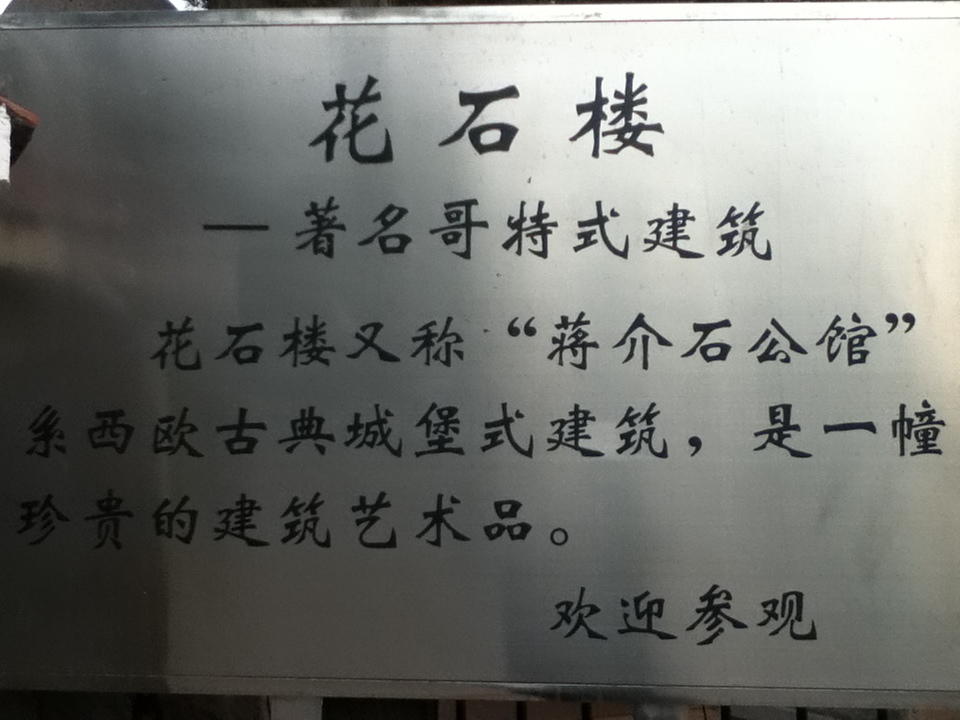 花石楼
—著名哥特式建筑
花石楼又称“蒋介石公馆”
系西欧古典城堡式建筑，是一幢
珍贵的建筑艺术品。
欢迎参观